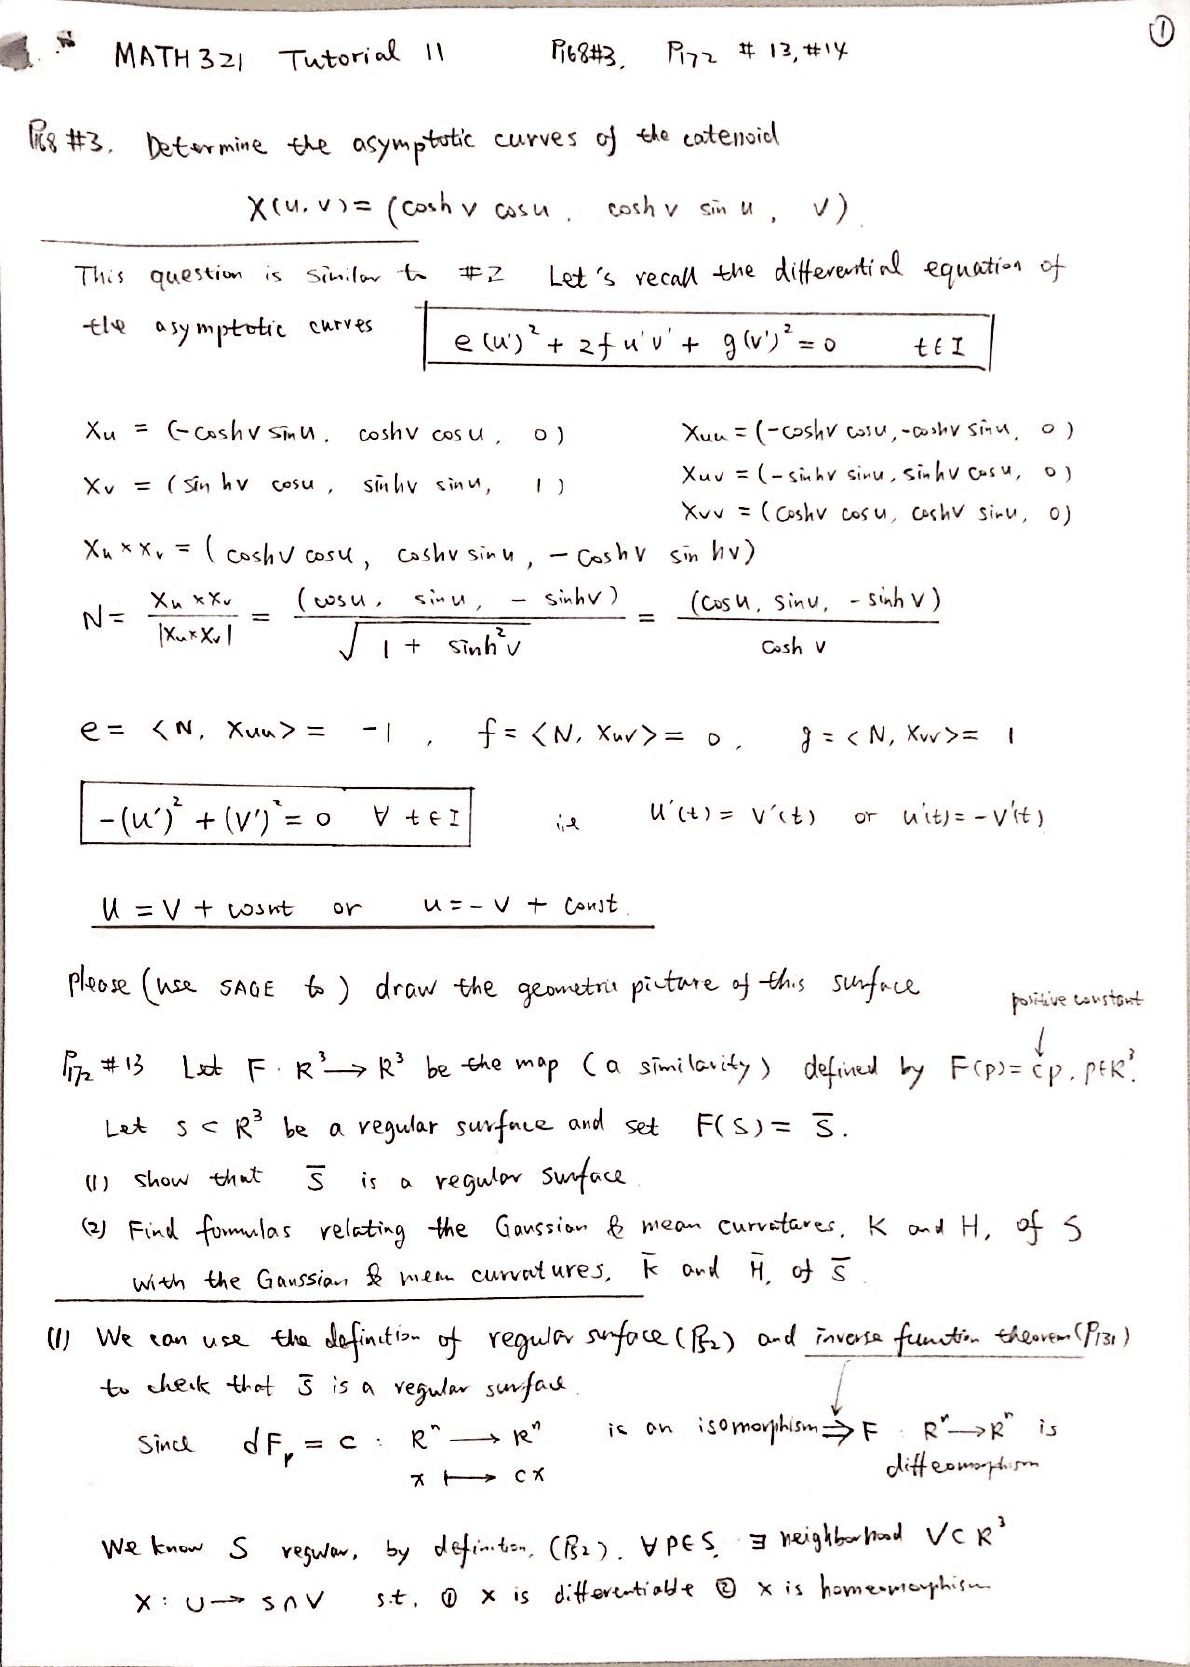 ①
MATH 321 Tutorial 11 P168#3, P172 # 13, #14
P168 #3. Determine the asymptotic curves of the catenoid
X(u, v) = (cosh v cos u, cosh v sin u, v)
This question is similar to #2 Let's recall the differential equation of
the asymptotic curves e(u')² + 2f u'v' + g(v')² = 0 t∈I
Xu = (-cosh v sin u, cosh v cos u, 0) Xuu = (-cosh v cos u, -cosh v sin u, 0)
Xv = (sinh v cos u, sinh v sin u, 1) Xuv = (-sinh v sin u, sinh v cos u, 0)
Xvv = (cosh v cos u, cosh v sin u, 0)
Xu × Xv = (cosh v cos u, cosh v sin u, - cosh v sinh v)
N = Xu × Xv / |Xu × Xv| = (cos u, sin u, - sinh v) / √(1 + sinh² v) = (cos u, sin u, - sinh v) / cosh v
e = <N, Xuu> = -1, f = <N, Xuv> = 0, g = <N, Xvv> = 1
-(u')² + (v')² = 0 ∀ t∈I i.e u'(t) = v'(t) or u'(t) = -v'(t)
u = v + const or u = -v + const.
please (use SAGE to) draw the geometric picture of this surface
positive constant
↓
P172 #13 Let F: R³ → R³ be the map (a similarity) defined by F(p) = cp, p∈R³.
Let S ⊂ R³ be a regular surface and set F(S) = S̄.
(1) Show that S̄ is a regular surface.
(2) Find formulas relating the Gaussian & mean curvatures, K and H, of S
with the Gaussian & mean curvatures, K̄ and H̄, of S̄.
(1) We can use the definition of regular surface (P52) and inverse function theorem (P131)
to check that S̄ is a regular surface.
Since dFp = c : Rⁿ → Rⁿ is an isomorphism ⇒ F : Rⁿ → Rⁿ is
x ↦ cx diffeomorphism
We know S regular, by definition, (P52). ∀ p∈S, ∃ neighborhood V ⊂ R³
X : U → S∩V s.t. ① x is differentiable ② x is homeomorphism